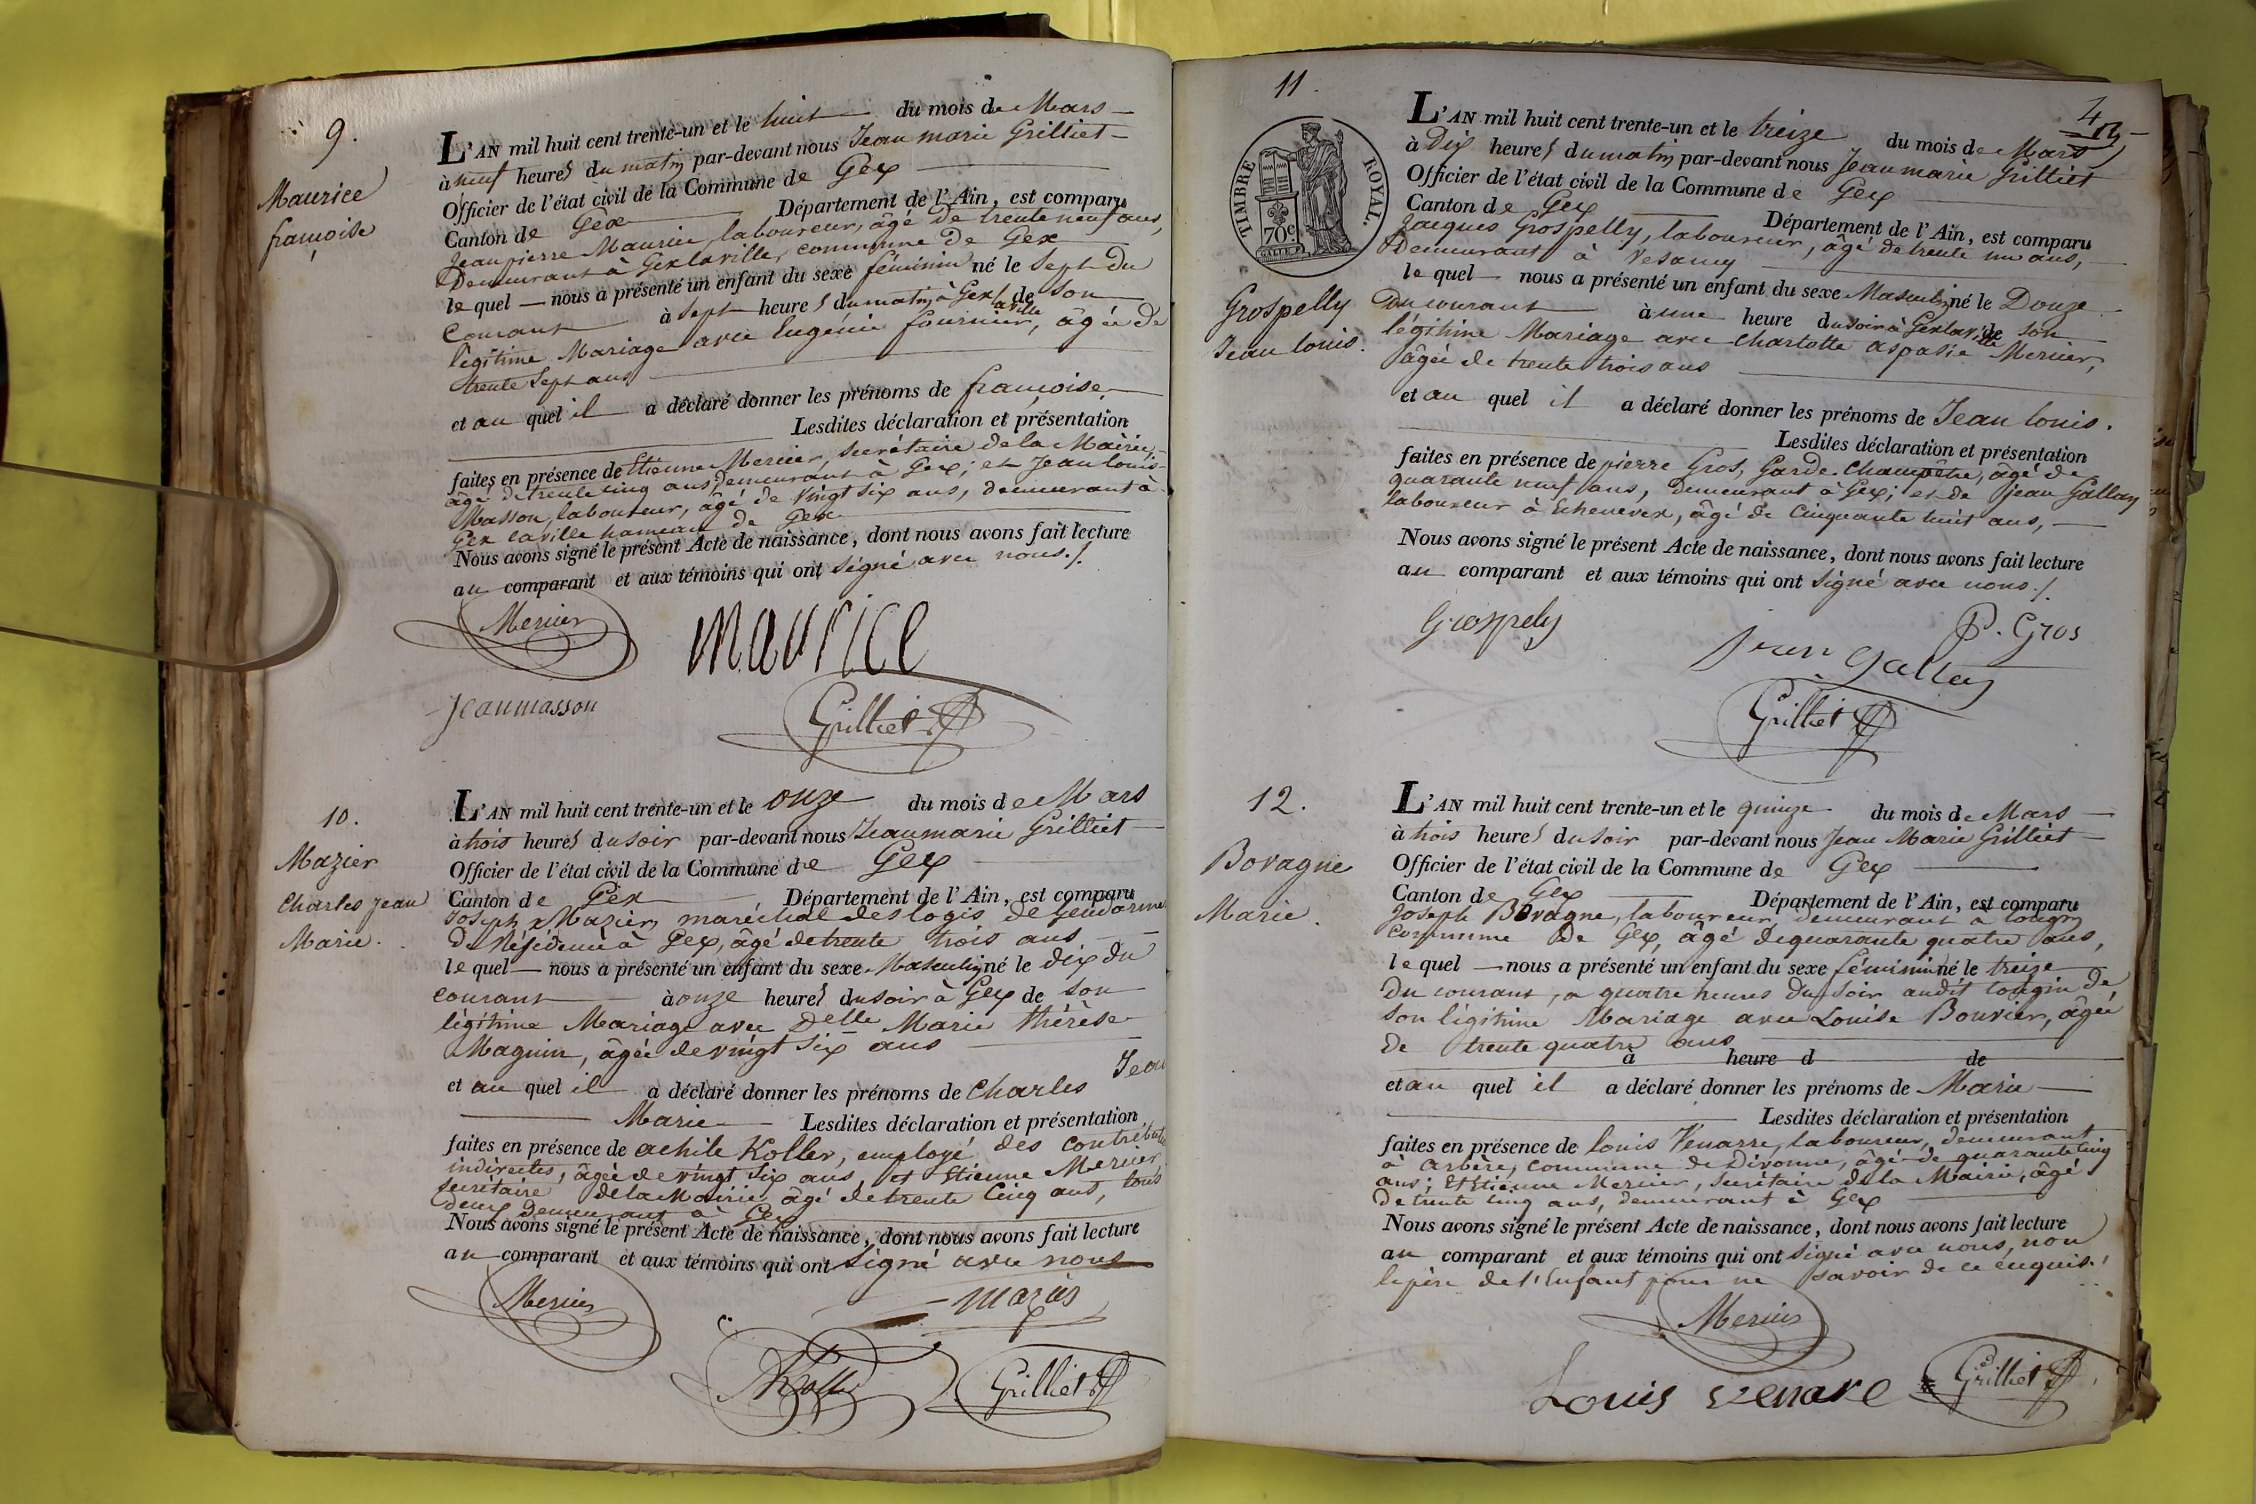 9.
Maurice
françoise
L'AN mil huit cent trente-un et le huit du mois de Mars
à neuf heures du matin par-devant nous Jean marie Grilliet
Officier de l'état civil de la Commune de Gex
Canton de Gex Département de l'Ain, est comparu
Jean pierre Maurice, laboureur, âgé de trente neuf ans,
Demeurant à Gexlaville, commune de Gex
le quel nous a présenté un enfant du sexe féminin né le Sept du
courant à sept heures du matin à Gexlaville de son
légitime Mariage avec Eugénie fournier, âgée de
trente Sept ans
et au quel il a déclaré donner les prénoms de françoise.
Lesdites déclaration et présentation
faites en présence de Etienne Mercier, secrétaire de la Mairie,
âgé de trente cinq ans, demeurant à Gex; et Jean louis
Masson, laboureur, âgé de vingt six ans, demeurant à
Gex laville hameau de Gex
Nous avons signé le présent Acte de naissance, dont nous avons fait lecture
au comparant et aux témoins qui ont signé avec nous./.
Mercier
maurice
Jeanmasson
Grilliet
10.
Mazier
Charles Jean
Marie.
L'AN mil huit cent trente-un et le onze du mois de Mars
à trois heures du soir par-devant nous Jean marie Grilliet
Officier de l'état civil de la Commune de Gex
Canton de Gex Département de l'Ain, est comparu
Joseph Mazier, maréchal des logis de Gendarmerie
De Résidence à Gex, âgé de trente trois ans
le quel nous a présenté un enfant du sexe Masculin né le dix du
courant à onze heures du soir à Gex de son
légitime Mariage avec Delle Marie thérèse
Magnin, âgée de vingt six ans
et au quel il a déclaré donner les prénoms de Charles Jean
Marie Lesdites déclaration et présentation
faites en présence de achile Koller, employé des contributions
indirectes, âgée de vingt six ans, et Etienne Mercier
secrétaire de la Mairie, âgé de trente cinq ans, tous
deux demeurant à Gex
Nous avons signé le présent Acte de naissance, dont nous avons fait lecture
au comparant et aux témoins qui ont signé avec nous
Mercier
mazier
AKoller
Grilliet
11.
4
TIMBRE ROYAL.
70c
Grospelly
Jean louis.
L'AN mil huit cent trente-un et le treize du mois de Mars
à Dix heures du matin par-devant nous Jean marie Grilliet
Officier de l'état civil de la Commune de Gex
Canton de Gex Département de l'Ain, est comparu
Jacques Grospelly, laboureur, âgé de trente un ans,
Demeurant à Vesancy
le quel nous a présenté un enfant du sexe Masculin né le Douze
Du courant à une heure du soir à Gexlaville de son
légitime Mariage avec charlotte aspasie Mercier,
âgée de trente trois ans
et au quel il a déclaré donner les prénoms de Jean louis.
Lesdites déclaration et présentation
faites en présence de pierre Gros, Garde-Champêtre, âgé de
quarante neuf ans, demeurant à Gex; et de jean Gallay
laboureur à Echenevex, âgé de cinquante huit ans,
Nous avons signé le présent Acte de naissance, dont nous avons fait lecture
au comparant et aux témoins qui ont signé avec nous./.
Grospely
P. Gros
Jean Gallay
Grilliet
12.
Bovagne
Marie.
L'AN mil huit cent trente-un et le quinze du mois de Mars
à trois heures du soir par-devant nous Jean Marie Grilliet
Officier de l'état civil de la Commune de Gex
Canton de Gex Département de l'Ain, est comparu
Joseph Bovagne, laboureur, demeurant à tougin
commune de Gex, âgé de quarante quatre ans,
le quel nous a présenté un enfant du sexe féminin né le treize
Du courant, a quatre heures du soir audit tougin De
son légitime Mariage avec Louise Bouvier, âgée
de trente quatre ans
à heure d de
et au quel il a déclaré donner les prénoms de Marie
Lesdites déclaration et présentation
faites en présence de louis Venarre, laboureur, demeurant
à arbère, commune de Divonne, âgé de quarante cinq
ans; Et Etienne Mercier, secrétaire de la Mairie, âgé
de trente cinq ans, demeurant à Gex
Nous avons signé le présent Acte de naissance, dont nous avons fait lecture
au comparant et aux témoins qui ont signé avec nous, non
le père de l'Enfant pour ne savoir de ce enquis./.
Mercier
Louis venare
Grilliet